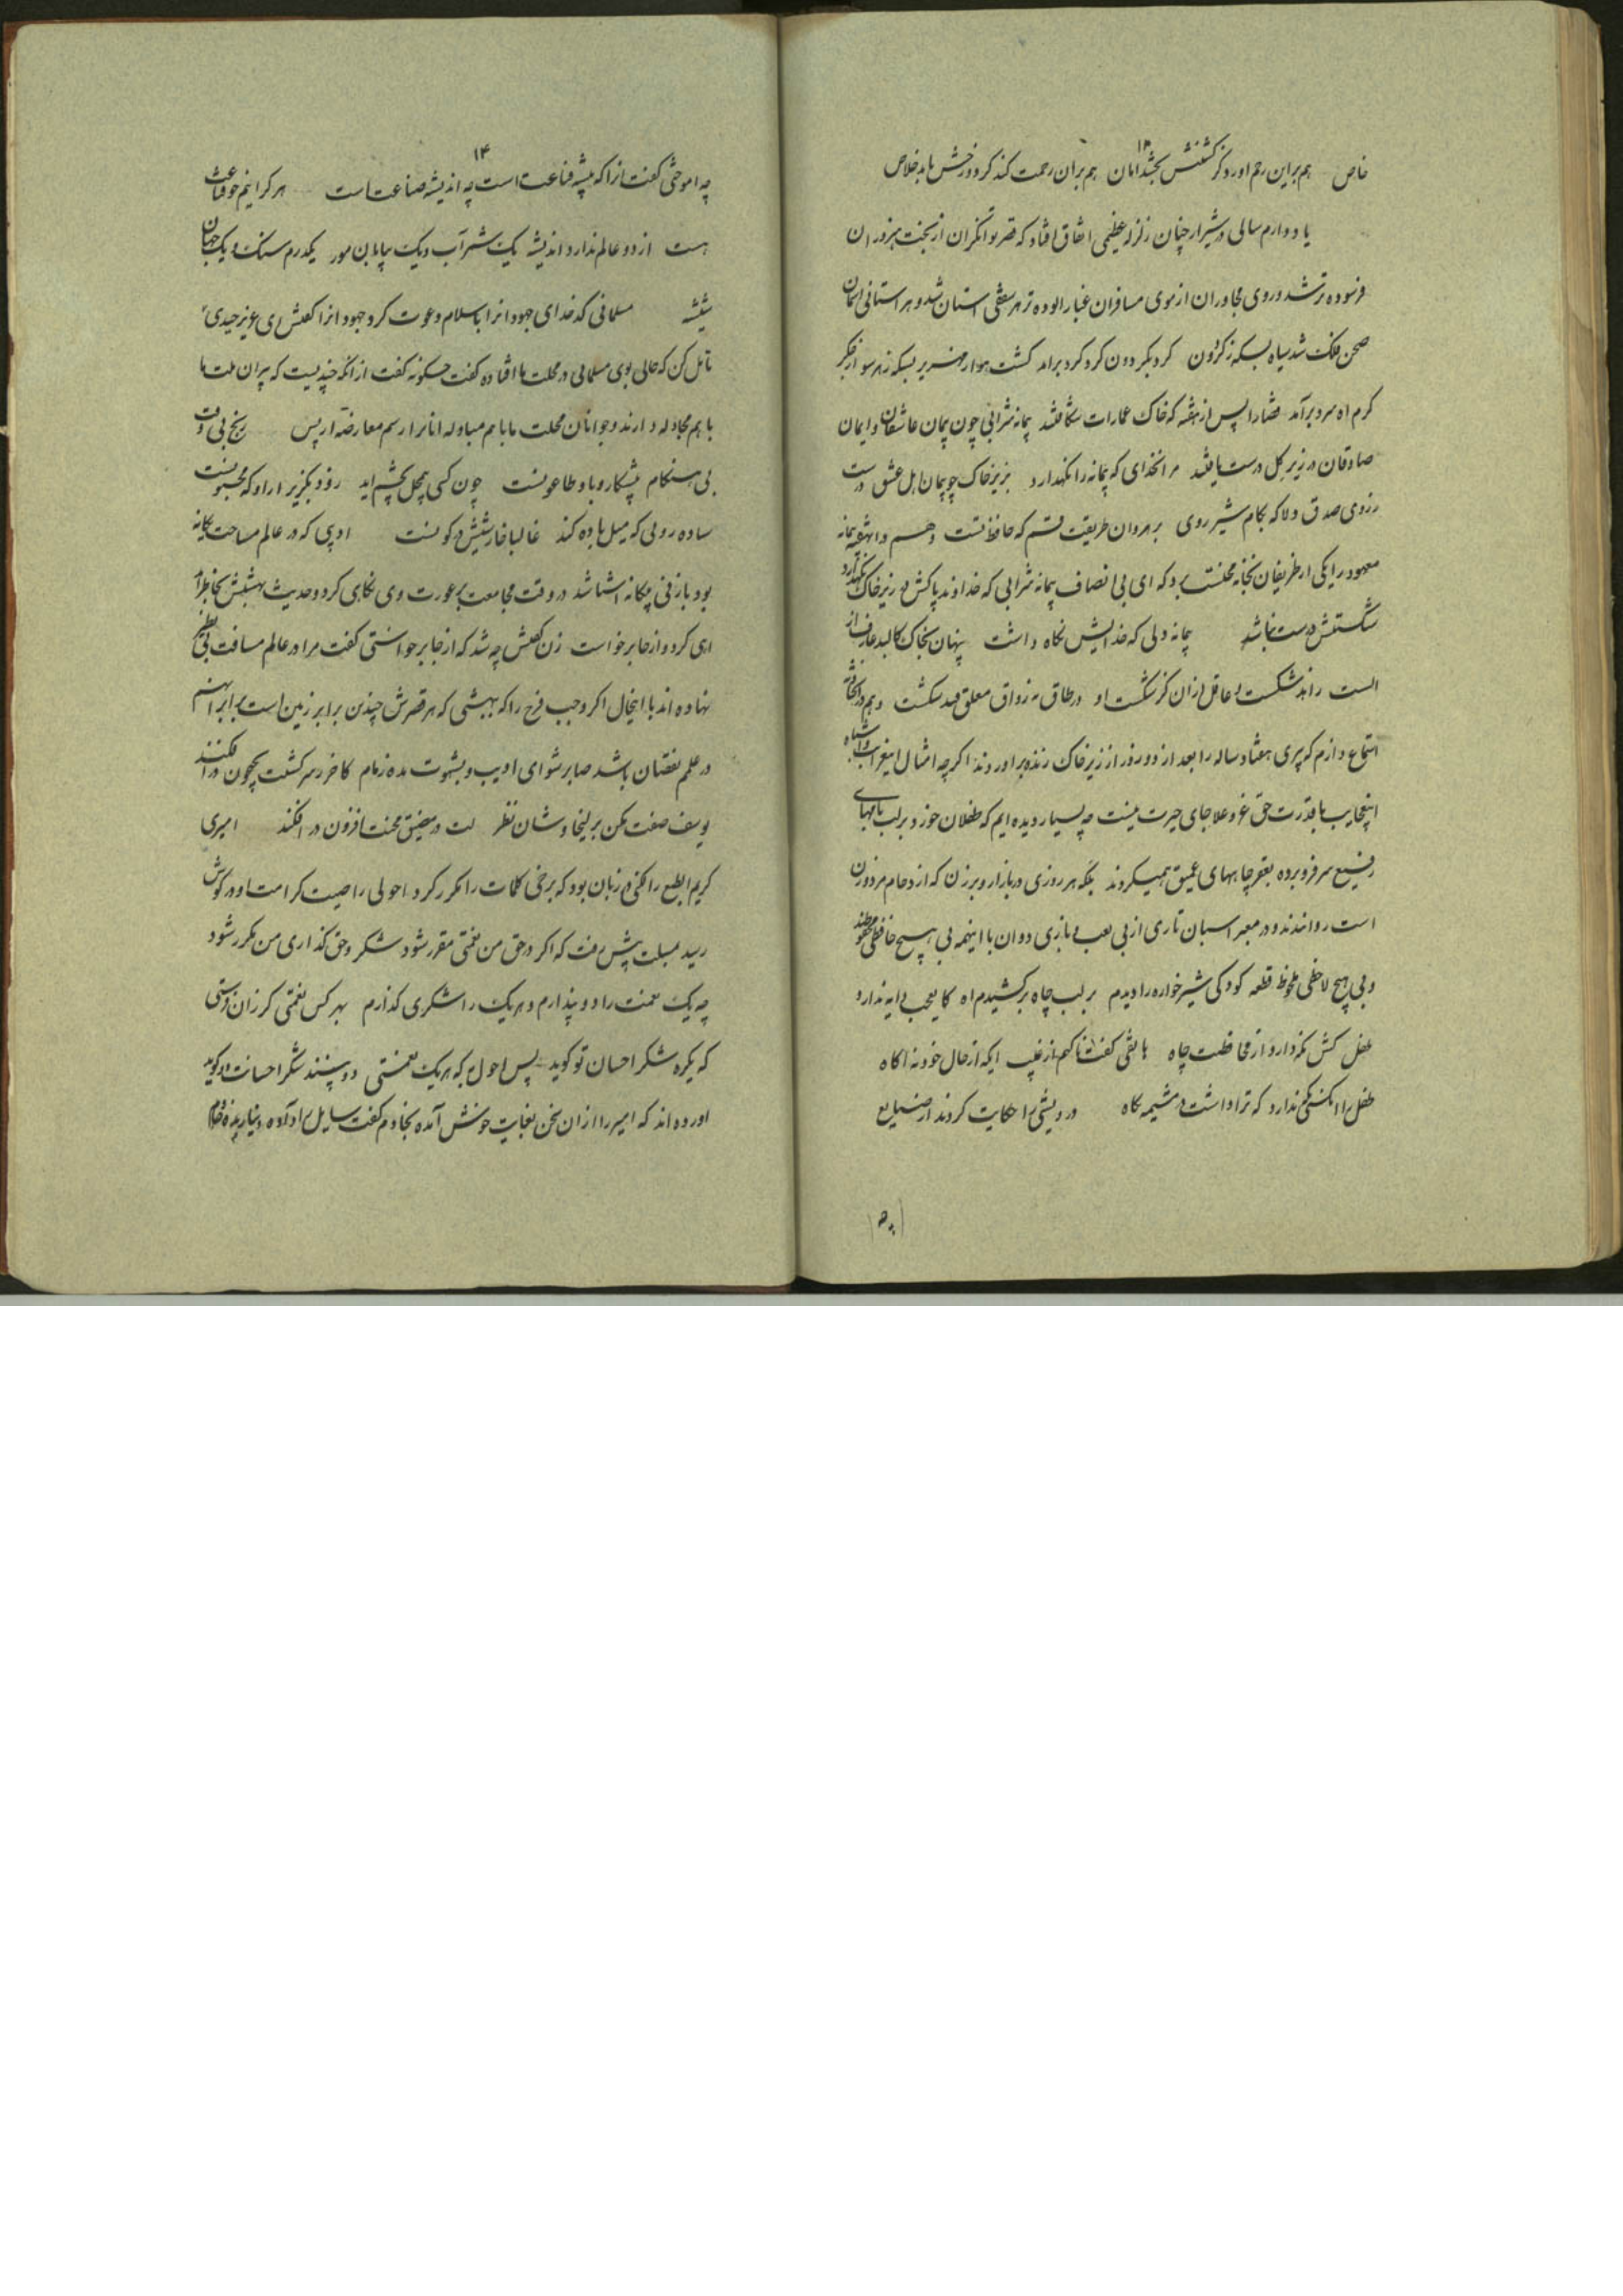 ۱۳
خاص هم براین رحم اورد کز کشتنش بخشد امان هم بران رحمت کند کز دوزخش یابد خلاص
یاد دارم سالی در شیراز چنان زلزله عظیمی اتفاق افتاد که قصر توانگران از بخت هنروران
فرسوده تر شد و روی مجاوران از موی مسافران غبار الوده تر هر سقفی استان شد و هر استانی اسمان
صحن فلک شد سیاه بسکه ز کردون کرد بکردون کرد کرد برامد کشت هوا زمهریر بسکه ز هر سو از جکر
کرم اه سرد برآمد قضا را پس از هفته که خاک عمارات شکافتند پیمانه شرابی چون پیمان عاشقان و ایمان
صادقان در زیر کل درست یافتند مر انخدای که پیمانه را نکهدارد بزیر خاک چو پیمان اهل عشق درست
ز روی صدق دلا که بکام شیر روی برهروان طریقت قسم که حافظ تست و هم در انهفته پیمانه
معهود را یکی از ظریفان بخانه محتسب برد که ای بی انصاف پیمانه شرابی که خداوند پاکش در زیر خاک نکهدارد
شکستنش درست نباشد پیمانه دلی که خدایش نکاه داشت پنهان بخاک کالبد عارف از
الست زاهد شکست و عاقل ازان کز شکست او در طاق نه رواق معلق فتد شکست و هم در انحادثه
استماع دارم که پیری هفتاد ساله را بعد از دو روز از زیر خاک زنده براوردند اکرچه امثال اینغرایب و اشباه
اینعجایب با قدرت حق عز و علا جای حیرت نیست چه بسیار دیده ایم که طفلان خورد بر لب بامهای
رفیع سر فرو برده بقعر چاههای عمیق همیکروند بلکه هر روزی در بازار و برزن که ازدحام مرد و زن
است روانند و در معبر اسبان تازی از پی لعب و بازی دوان با اینهمه بی هیچ حافظی محفوظند
و بی هیچ لاحظی ملحوظ قطعه کودکی شیرخواره را دیدم بر لب چاه برکشیدم اه کایعجب دایه ندارد
طفل کش نکه دارد از مخافت چاه هاتفی کفت ناکهم از غیب ایکه از حال خود نه اکاه
طفل را انکسی نکه دارد که ترا داشت در مشیمه نکاه درویشی را حکایت کردند از ضیاع
چه
۱۴
چه اموختی کفت ازا که پیشه قناعت است چه اندیشه صناعت است هر کرا نیم جو قناعت
هست از دو عالم ندارد اندیشه یک شمر آب و یک بیابان مور یکدرم سنک و یک جهان
شیشه مسلمانی کدخدای جهودانرا باسلام دعوت کرد جهودانرا کفتش ای عزیز چندی
تامل کن که حالی بوی مسلمانی در محلت ما افتاده کفت چکونه کفت ازانکه چندیست که پیران ملت ما
باهم مجادله دارند و جوانان محلت ما باهم مبادله انانرا رسم معارضه از پس رنج بی وقت و
بی هنکام پیشکار وبا و طاعونست چون کسی پمچل بچشم اید زود بکریز ازاو که مجنونست
ساده رویی که میل باده کند غالبا خارشیش در کونست ادیبی که در عالم مساحت یکانه
بود با زنی بیکانه اشنا شد در وقت مجامعت بر عورت وی نکاهی کرد و حدیث بهشتش بخاطر آمد
اهی کرد و از جا برخواست زن کفتش چه شد که از جا برخواستی کفت مرا در عالم مسافت بی نظیر
نهاده اند با اینحال اکر وجب فرج را که بهشتی که هر قصرش چندین برابر زمین است برابر نهم
در علم نقصان باشد صابر شو ای ادیب و بشهوت مده زمام کاخر ز سر کشت بچون در افکنند
یوسف صفت مکن بزلیخا وشان نظر لت در مضیق محنت افزون در افکند امیری
کریم الطبع را لکنتی در زبان بود که برخی کلمات را مکرر کردی احولی را صیت کرامت او در کوش
رسید مبلت پیش رفت که اکر در حق من نعمتی مقرر شود شکر و حق کذاری من مکرر شود
چه یک نعمت را دو پندارم و هر یک را شکری کذارم بهر کس نعمتی کر زان فرستی
که یکره شکر احسان تو کوید پس احول به که هر یک نعمتی دو بیند شکر احسانت دو کوید
اورده اند که امیر را ازان سخن بغایت خوش آمده بخادم کفت سایل را ده ده دینار بده خادم